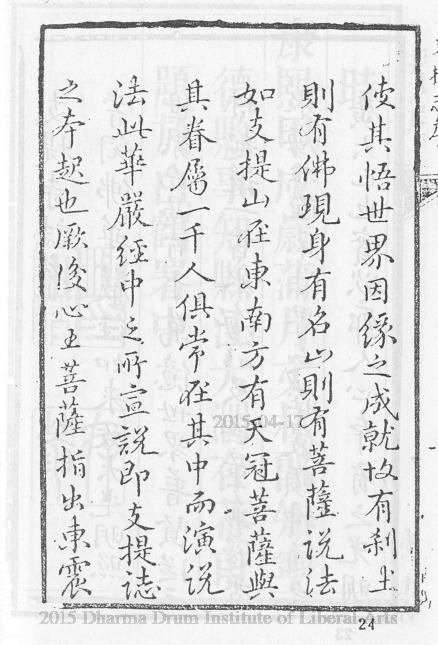 使其悟世界因緣之成就故有刹土
則有佛現身有名山則有菩薩說法
如支提山在東南方有天冠菩薩與
其眷屬一千人俱常在其中而演說
法此華嚴經中之所宣說即支提誌
之本起也厥後心王菩薩指出東震
2015-04-17
2015 Dharma Drum Institute of Liberal Arts
24
23